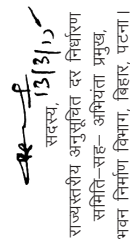 13/3/15
सदस्य,
राज्यस्तरीय अनुसूचित दर निर्धारण
समिति-सह- अभियंता प्रमुख,
भवन निर्माण विभाग, बिहार, पटना।